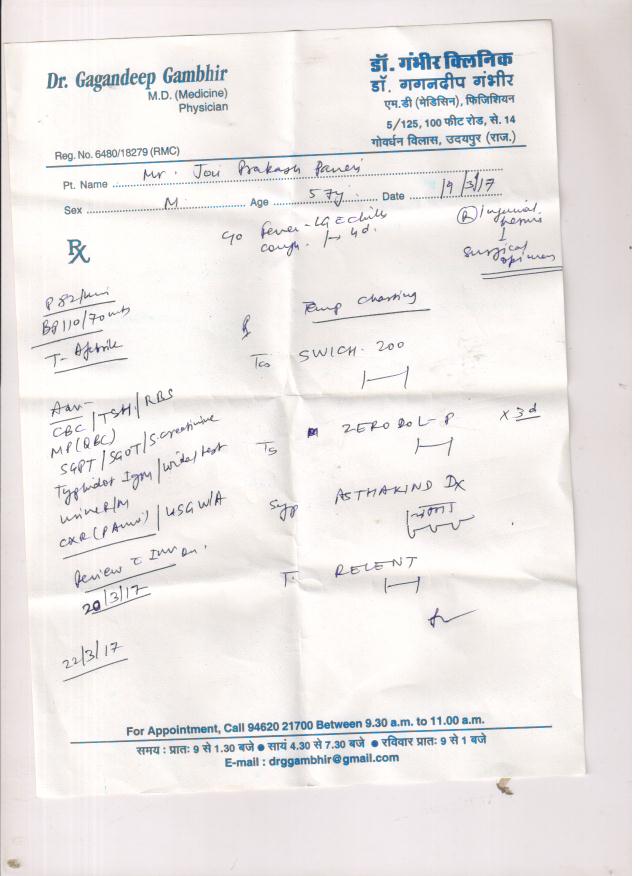 Dr. Gagandeep Gambhir
M.D. (Medicine)
Physician
Reg. No. 6480/18279 (RMC)
डॉ. गंभीर क्लिनिक
डॉ. गगनदीप गंभीर
एम.डी (मेडिसिन), फिजिशियन
5/125, 100 फीट रोड, से. 14
गोवर्धन विलास, उदयपुर (राज.)
Pt. Name Mr. Prakash
Sex M Age 57y Date 19/3/17
Rx
c/o Fever - chills
cough. 4d.
Surgical
P 82/min
BP 110/70
T- Afebrile
Temp charting
SWICH - 200
Adv-
CBC / TSH / RBS
MP (QBC)
SGPT / SGOT / S. creatinine
Typhidot Igm / widal test
urine R/M
CXR (PA view) / USG W/A
Review
20/3/17
22/3/17
ZERODOL-P x 3d
Syp ASTHAKIND Dx
T. RELENT
For Appointment, Call 94620 21700 Between 9.30 a.m. to 11.00 a.m.
समय : प्रातः 9 से 1.30 बजे ● सायं 4.30 से 7.30 बजे ● रविवार प्रातः 9 से 1 बजे
E-mail : drggambhir@gmail.com